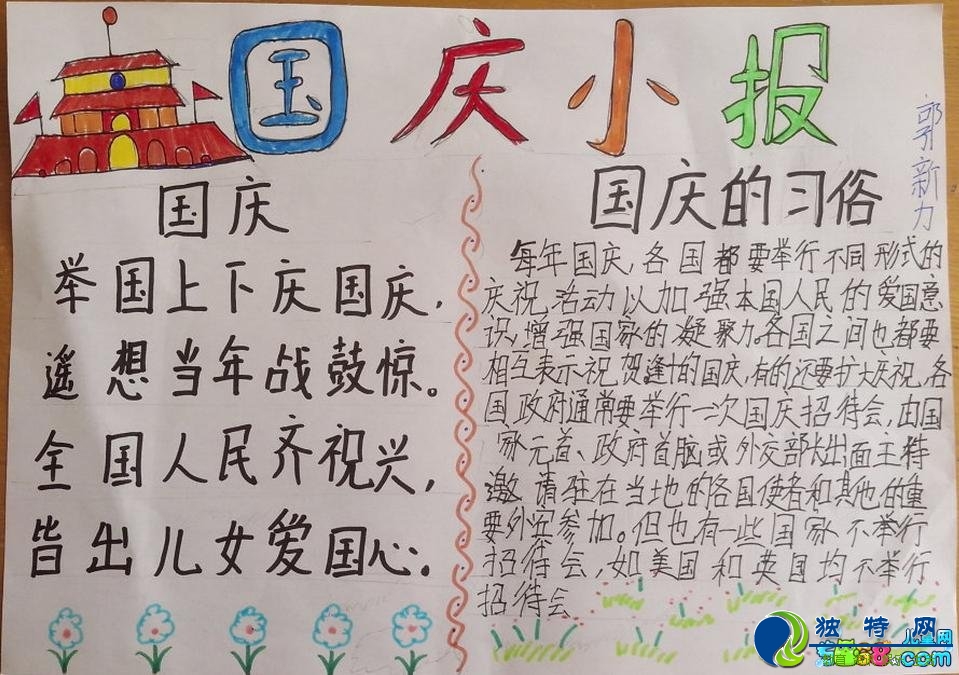 国庆小报
郭新力
国庆
举国上下庆国庆,
遥想当年战鼓惊。
全国人民齐祝兴,
皆出儿女爱国心。
国庆的习俗
每年国庆,各国都要举行不同形式的
庆祝活动以加强本国人民的爱国意
识,增强国家的凝聚力。各国之间也都要
相互表示祝贺逢十的国庆,有的还要扩大庆祝,各
国政府通常要举行一次国庆招待会,由国
家元首、政府首脑或外交部长出面主持
邀请驻在当地的各国使者和其他的重
要外宾参加。但也有一些国家不举行
招待会,如美国和英国均不举行
招待会
独特网
儿童网
.com